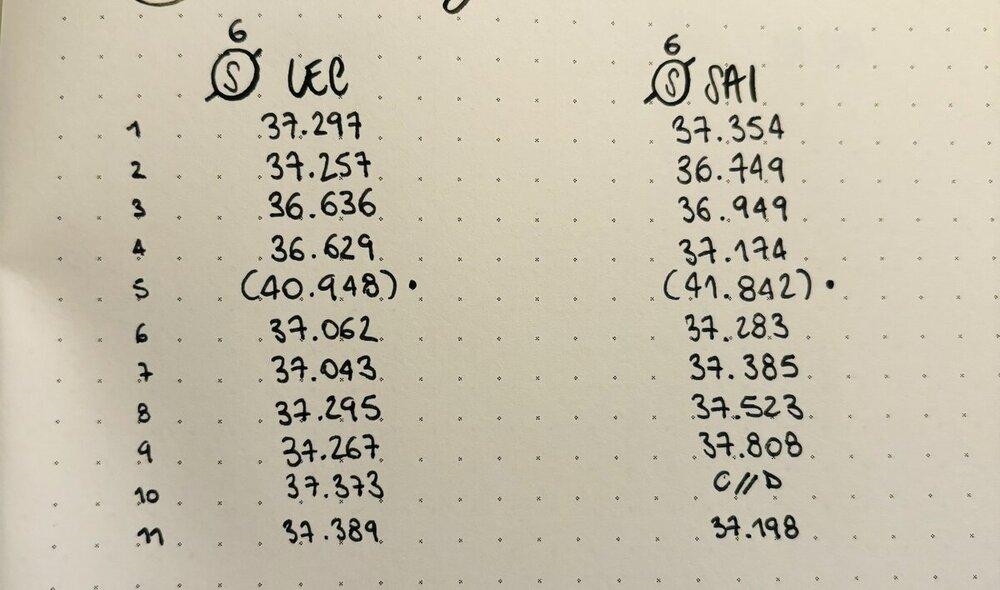 6 6
S LEC S SAI
1 37.297 37.354
2 37.257 36.749
3 36.636 36.949
4 36.629 37.174
5 (40.948)• (41.842)•
6 37.062 37.283
7 37.043 37.385
8 37.295 37.523
9 37.267 37.808
10 37.373 C//D
11 37.389 37.198